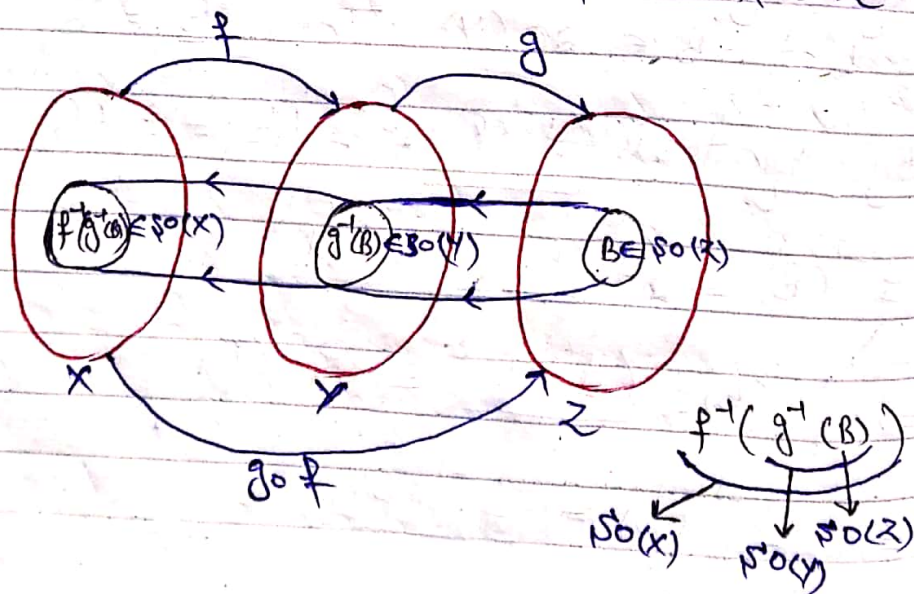 f
g
f⁻¹(g⁻¹(B)) ∈ SO(X)
g⁻¹(B) ∈ SO(Y)
B ∈ SO(Z)
X
Y
Z
g∘f
f⁻¹( g⁻¹ (B) )
SO(X)
SO(Y)
SO(Z)